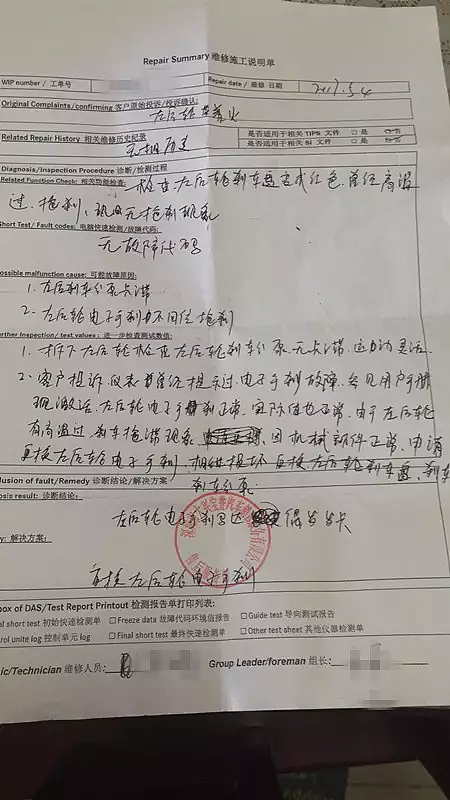 Repair Summary 维修施工说明单
WIP number / 工单号
Repair date / 维修 日期 2017.5.4
Original Complaints/confirming 客户原始投诉/投诉确认:
左后轮着火
Related Repair History 相关维修历史纪录
无相历史
是否适用于相关 TIPS 文件 □ 是
是否适用于相关 SI 文件 □ 是
Diagnosis/Inspection Procedure 诊断/检测过程
Related Function Check: 相关功能检查: 检查左后轮刹车盘变成红色,曾经高温
过,抱刹,现没无抱刹现象
Short Test/ Fault codes: 电脑快速检测/故障代码:
无故障代码
ossible malfunction cause: 可能故障原因:
1. 左后刹车分泵卡滞
2. 左后轮电子手刹不回位抱刹
urther Inspection/ test values: 进一步检查测试数值:
1. 拆下左后轮检查左后轮刹车分泵无卡滞,运动灵活.
2. 客户投诉仪表曾经提示过电子手刹故障,
现激活左后轮电子手刹正常,实际值也正常,由于左后轮
有高温过,刹车抱滞现象,因机械部件正常,申请
更换左后轮电子手刹,相继损坏更换左后轮刹车盘,刹车
刹车分泵
clusion of fault/Remedy 诊断结论/解决方案
nosis result: 诊断结论:
左后轮电子手刹马达
y: 解决方案:
更换左后轮电子手刹
box of DAS/Test Report Printout 检测报告单打印列表:
al short test 初始快速检测单 □ Freeze data 故障代码环境值报告 □ Guide test 导向测试报告
trol unite log 控制单元 log □ Final short test 最终快速检测单 □ Other test sheet 其他仪器检测单
ic/Technician 维修人员: Group Leader/foreman 组长: